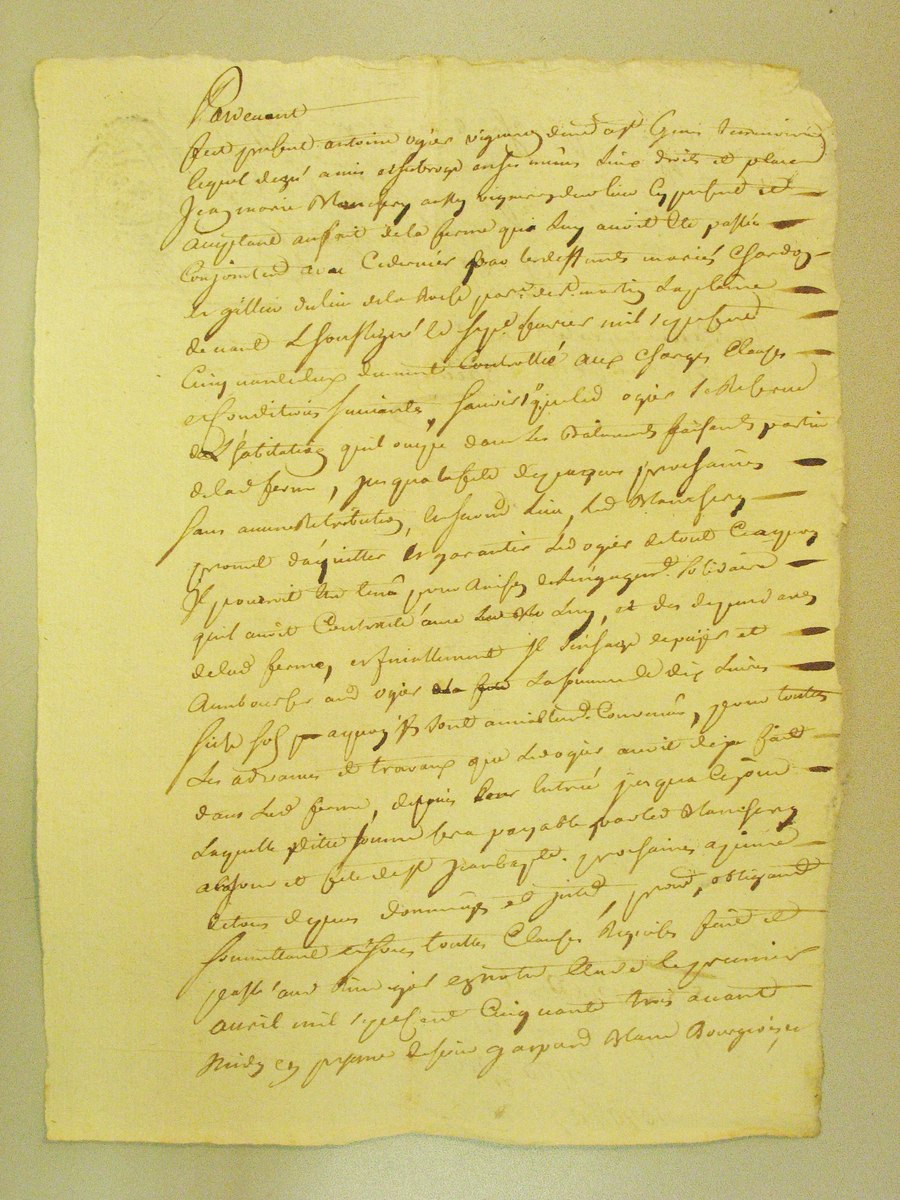 Pardevant
fut present antoine ogier vigneron
lequel de gré a mis et subrogé en ses mains lieux droits et place
Jean marie aussy vigneron dud lieu cy present et
acceptant au fait de la ferme qui luy avoit été passée
Conjointed avec Cedernier par les maries Chardon
et gillin du lieu de la Roche par
devant L soussigné le sept fevrier mil sept cent
Cinquantedeux dument Controllé aux Charges Clauses
et Conditions suivantes, sçavoir 1° queled ogier se Reserve
de L'habitation quil ocupe dans les Batiments faisants partie
delad ferme, jusqua la fete de prochaines
sans aucune Retribution, en second lieu, Led
promet d'aquitter et garantir Led ogier de tout Ce aquoy
Il pourroit etre tenu pour raison de Lengagemt solidaire
quil avoit Contracté avec luy, et des
delad ferme, et finallement Il de payer et
Rembourser aud ogier La somme de dix Livres
sols aquoy ils sont amiablemt Convenus, pour touttes
Les avances et travaux que Led ogier avoit deja fait
dans Lad ferme, depuis leur Entrée jusqua Cejour
Laquelle ditte somme sera payable par led
au jour et fete de st jean bapte prochaines a peine
de tous depens dommages et intds, promt, obligeant
soumettant et sous touttes Clauses Requises fait et
passé aud en notre Etude le premier
avril mil sept cent Cinquante trois avant
midy en presence de sieur gaspard Bourgeois